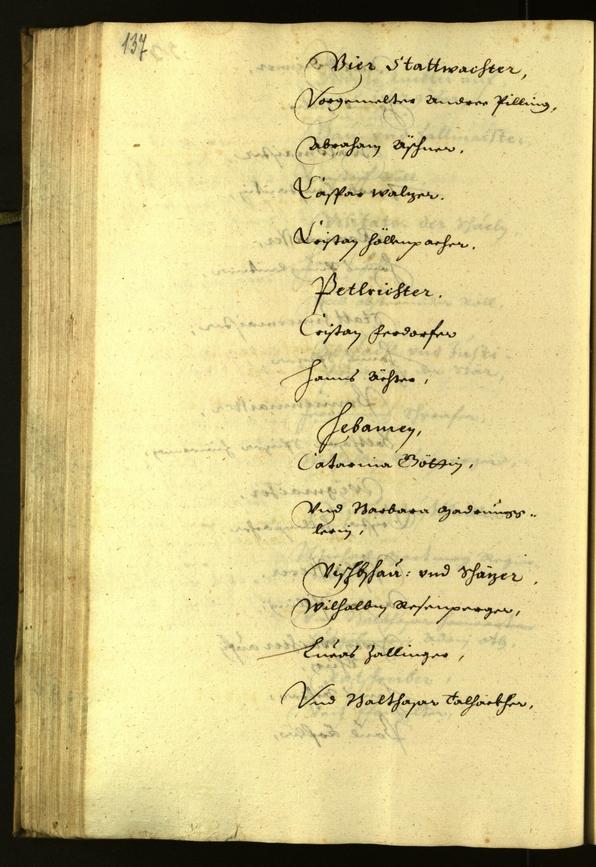 137
Vier Stattwachter,
Vorgemelter Andree Pilling,
Abraham Aschner,
Caspar walzer.
Cristan Höllenpacher.
Petlrichter.
Cristan Herdorfer
Hanns Achter,
Hebamen,
Catarina
Vnd Barbara Gadnungs„
lerin,
Vischbschau: vnd Schäzer,
Wilhalbm Rosenperger,
Lucas Zallinger,
Vnd Balthasar Talhackher,